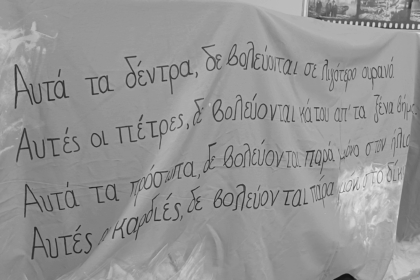 Αυτά τα δέντρα, δε βολεύονται σε λιγότερο ουρανό
Αυτές οι πέτρες, δε βολεύονται κάτου απ' τα ξένα
Αυτά τα πρόσωπα, δε βολεύονται παρά μόνο στον ήλιο
Αυτές οι καρδιές, δε βολεύονται παρά μόνο στο